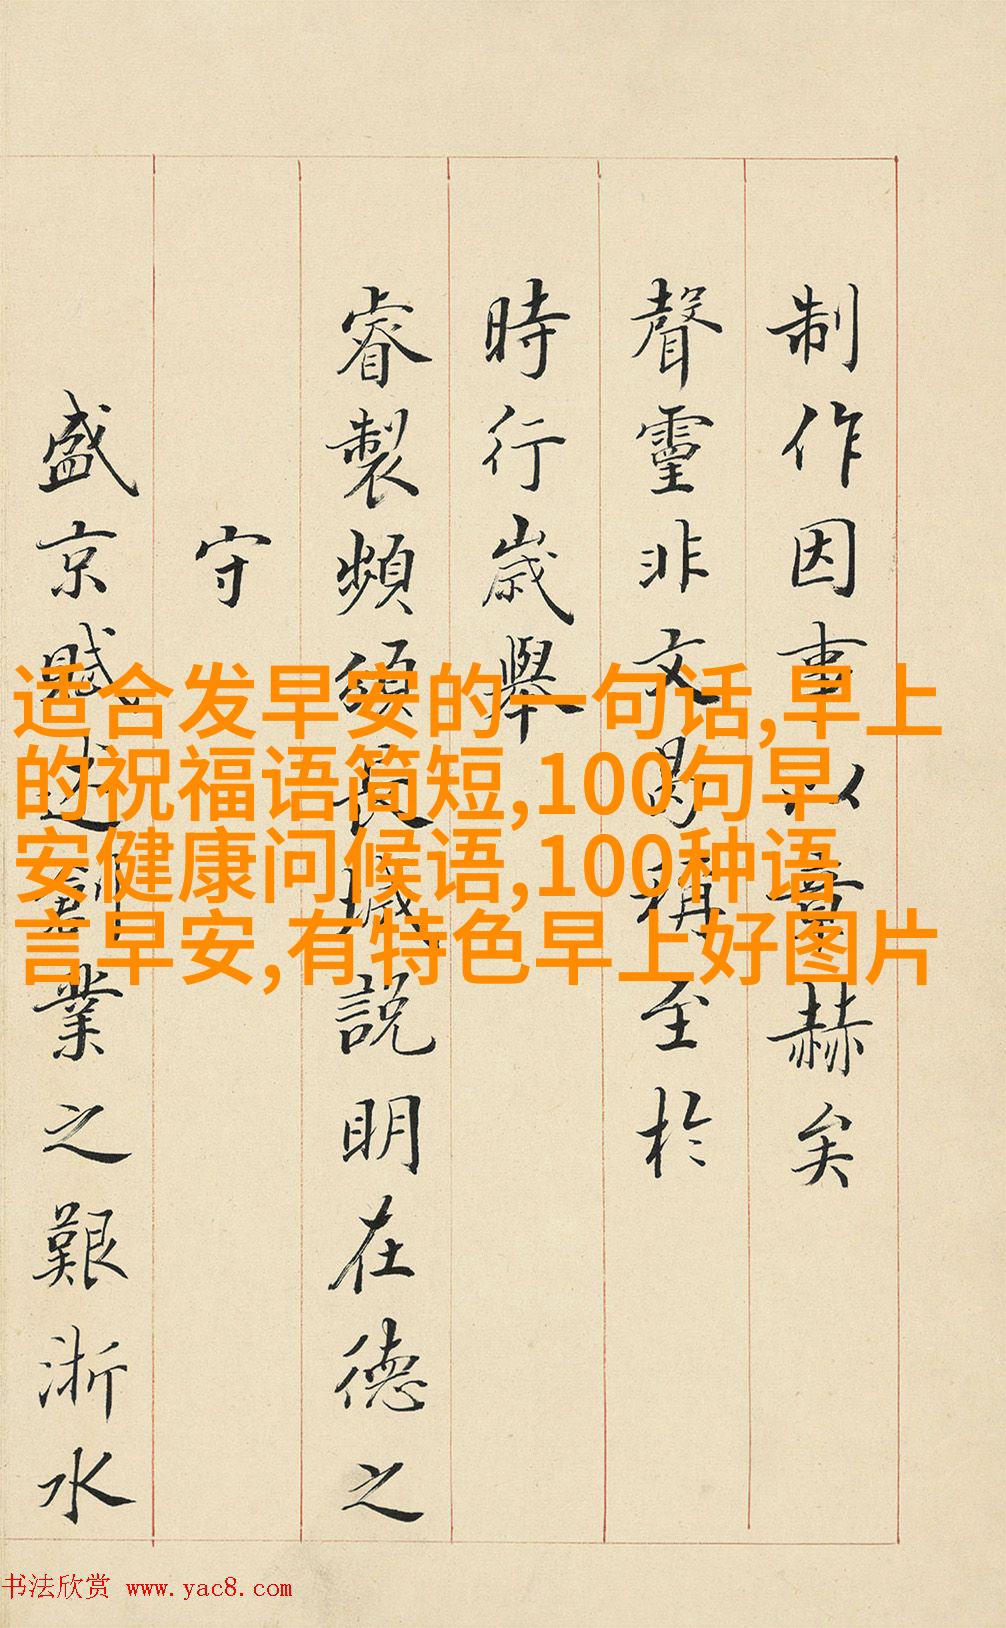 制作因事以章赫矣
聲靈非文曷稱至於
時行歲舉
睿製頻頒長城說明在德之
守
盛京賦述業之艱浙水
适合发早安的一句话,早上
的祝福语简短,100句早
安健康问候语,100种语
言早安,有特色早上好图片
书法欣赏 www.yac8.com